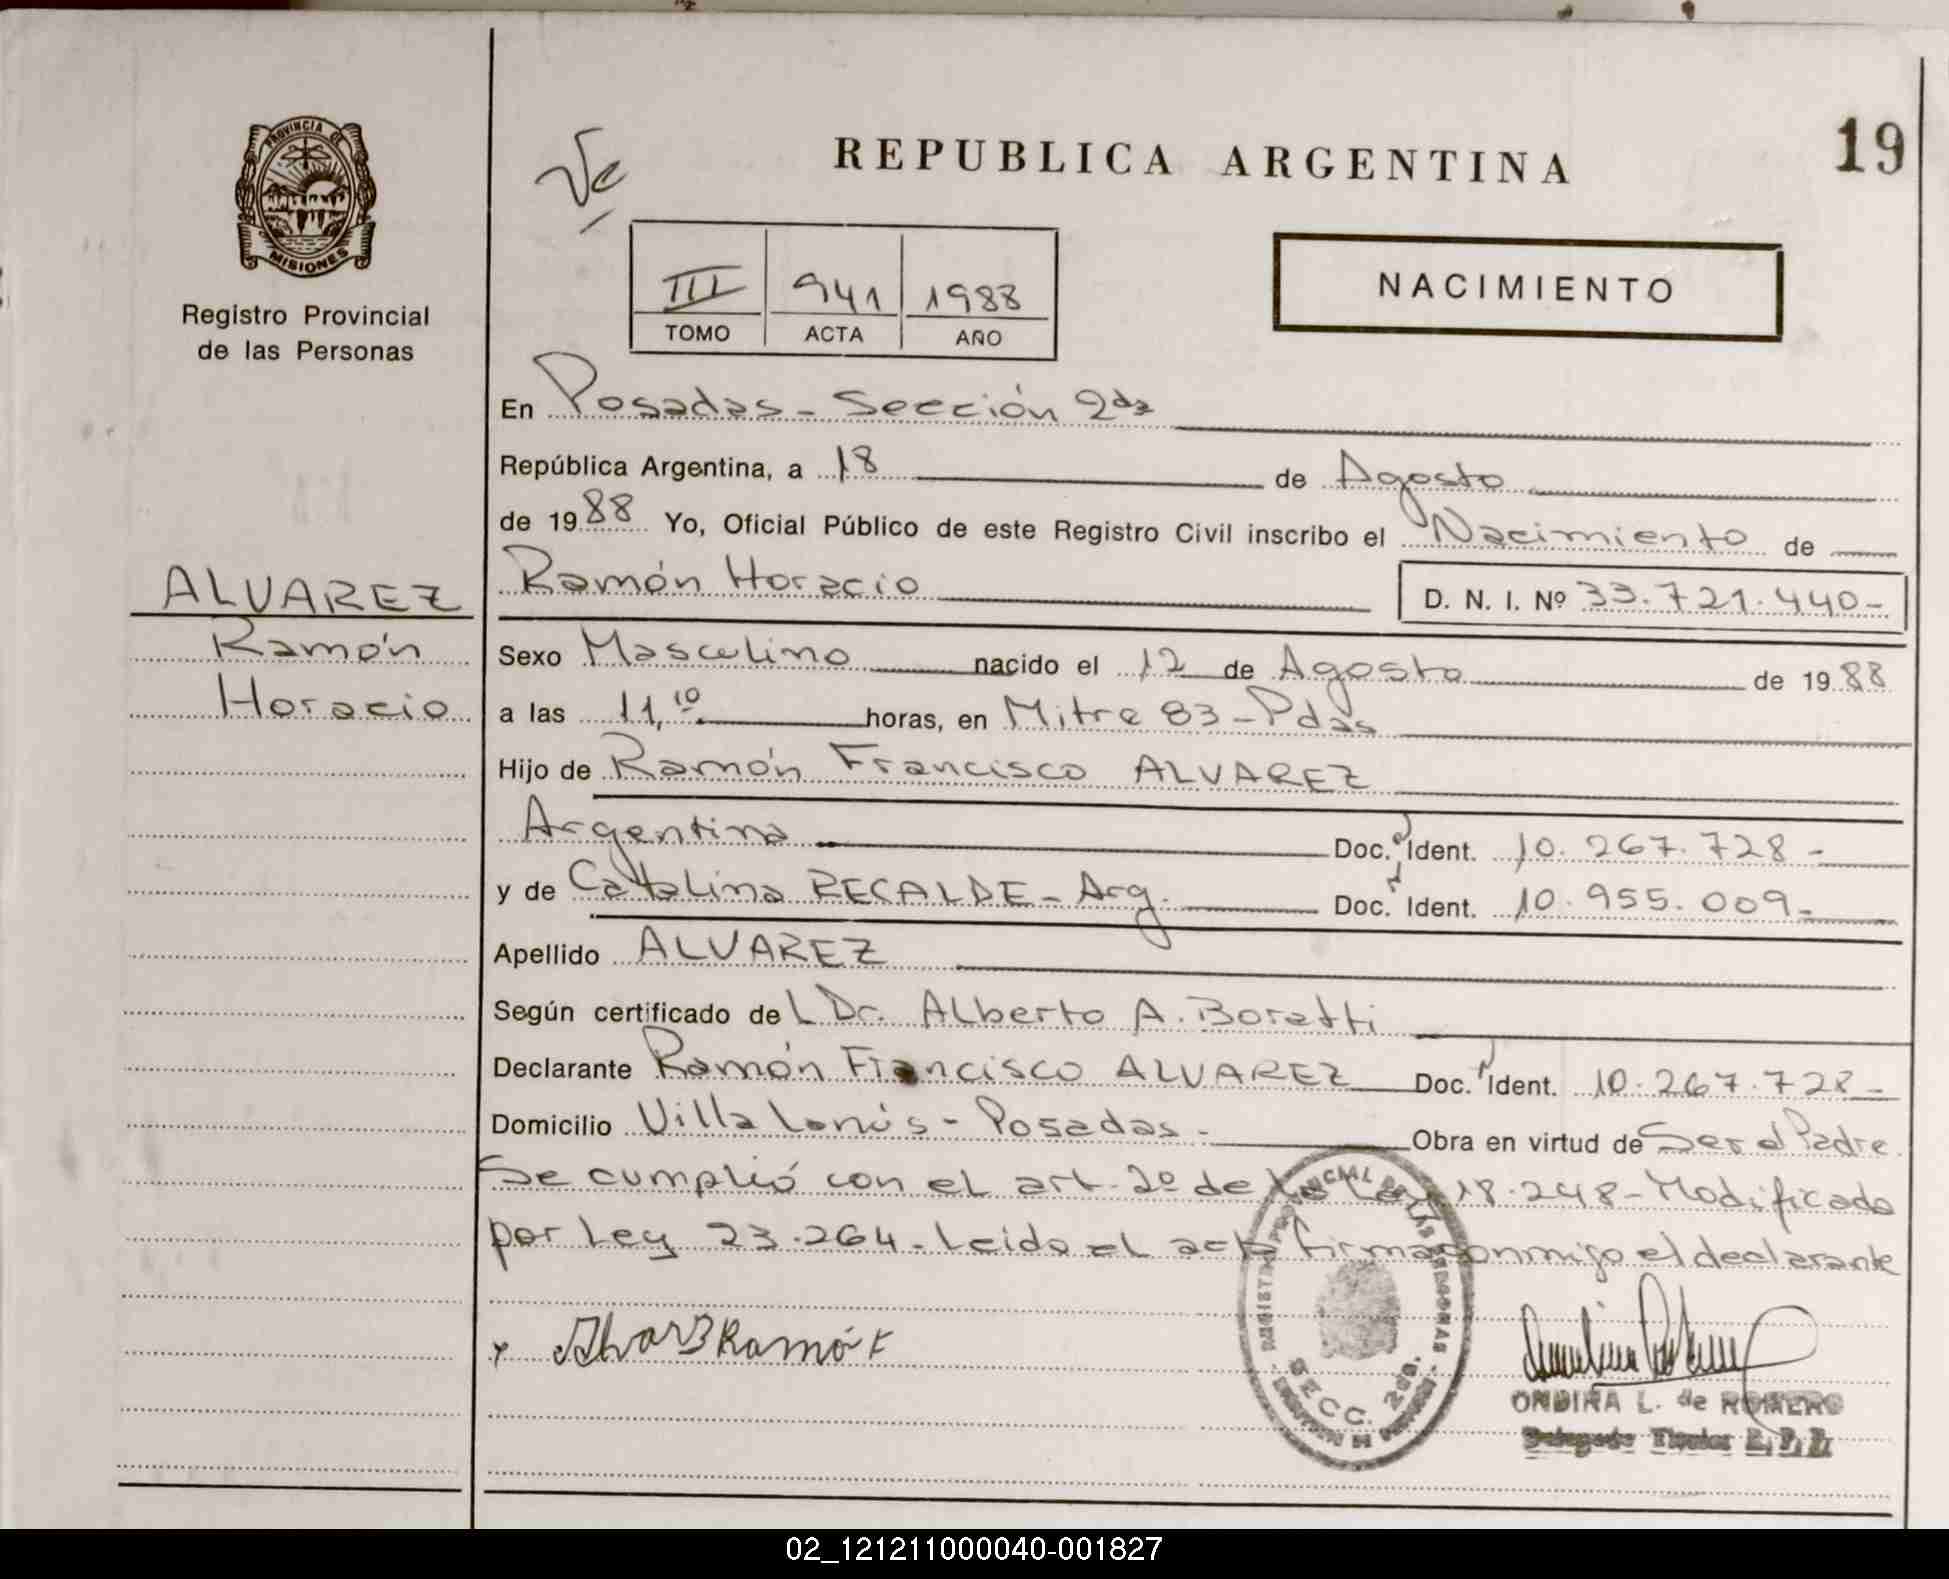 REPUBLICA ARGENTINA
19
PROVINCIA DE
MISIONES
Registro Provincial
de las Personas
III 941 1988
TOMO ACTA AÑO
NACIMIENTO
En Posadas - Sección 2da
República Argentina, a 18 de Agosto
de 1988 Yo, Oficial Público de este Registro Civil inscribo el Nacimiento de
ALVAREZ
Ramón
Horacio
Ramón Horacio D. N. I. Nº 33.721.440-
Sexo Masculino nacido el 12 de Agosto de 1988
a las 11,10 horas, en Mitre 83 - Pdas
Hijo de Ramón Francisco ALVAREZ
Argentina Doc. Ident. 10.267.728-
y de Catalina RECALDE - Arg. Doc. Ident. 10.955.009-
Apellido ALVAREZ
Según certificado del Dr. Alberto A. Boratti
Declarante Ramón Francisco ALVAREZ Doc. Ident. 10.267.728-
Domicilio Villa Lanús - Posadas - Obra en virtud de Ser el Padre
Se cumplió con el art. 2º de la Ley 18.248 - Modificado
por Ley 23.264 - Leído el acta firma conmigo el declarante
x Alvarez Ramón F
SECC. 2da.
ONDINA L. de ROMERO
Delegado Titular R. P. P.
02_121211000040-001827